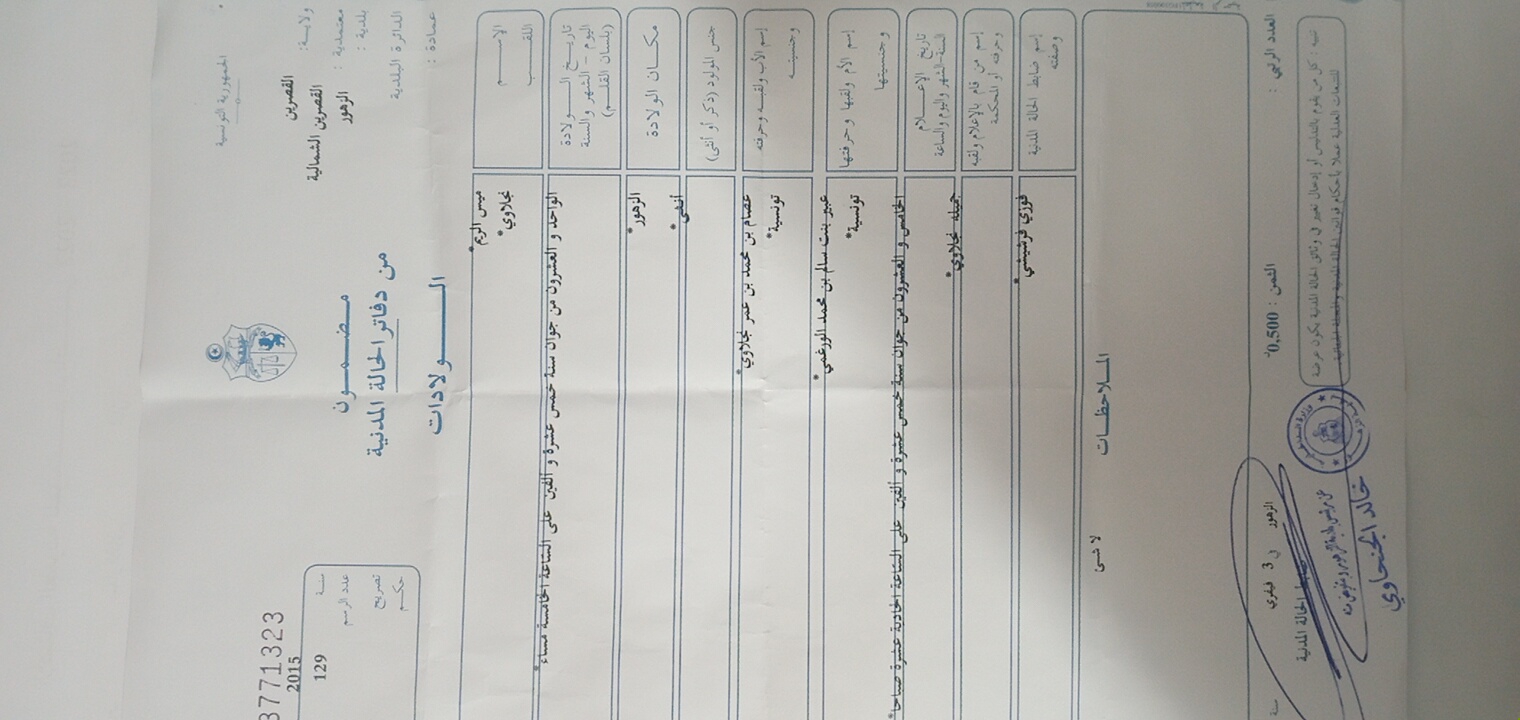 الجمهورية التونسية
ولاية: القصرين
معتمدية: القصرين الشمالية
بلدية: الزهور
الدائرة البلدية
عمادة:
مضمون
من دفاتر الحالة المدنية
الولادات
3771323
سنة 2015
عدد الرسم 129
تصريح
حكم
الاسم ميس الريم*
اللقب نجلاوي*
تاريخ الولادة
اليوم - الشهر والسنة
(بلسان القلم)
الواحد و العشرون من جوان سنة خمس عشرة و ألفين على الساعة الخامسة مساء*
مكان الولادة الزهور*
جنس المولود (ذكر أو أنثى) أنثى*
إسم الأب ولقبه وحرفته عصام بن محمد بن عمر نجلاوي*
وجنسيته تونسية*
إسم الأم ولقبها وحرفتها عبير بنت سالم بن محمد الورغمي*
وجنسيتها تونسية*
تاريخ الإعلام
السنة-الشهر واليوم والساعة
الخامس و العشرون من جوان سنة خمس عشرة و ألفين على الساعة الحادية عشرة صباحا*
إسم من قام بالإعلام ولقبه
وحرفته أو المحكمة
جميلة نجلاوي*
إسم ضابط الحالة المدنية
وصفته
فوزي قرشيشي*
الملاحظات
لا شئ
العدد الرتبي :
الثمن : 0,500
الزهور في 3 فيفري سنة
ضابط الحالة المدنية
تنبيه : كل من يقوم بالتدليس أو إدخال تغيير في وثائق الحالة المدنية يكون عرضة
للتتبعات العدلية عملا بأحكام قوانين الحالة المدنية والمجلة الجنائية